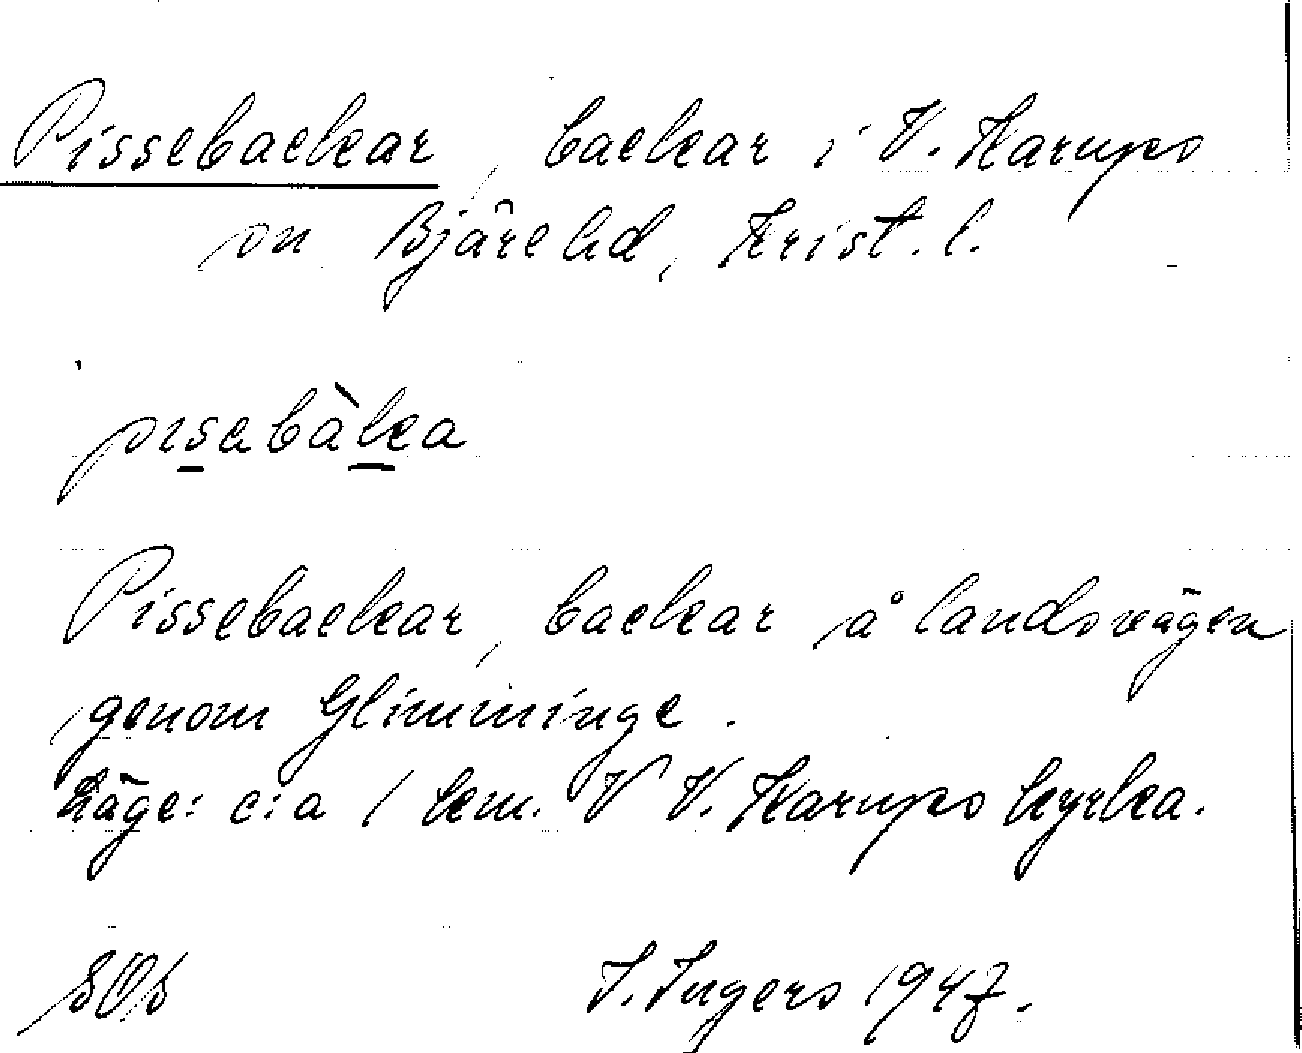 Pissebackar, backar i V. Karups
sn Bjäre hd, Krist. l.
pısabàka
Pissebackar, backar å landsvägen
genom Glimminge.
Läge: c:a 1 km. V V. Karups kyrka.
SOs
I. Ingers 1947.